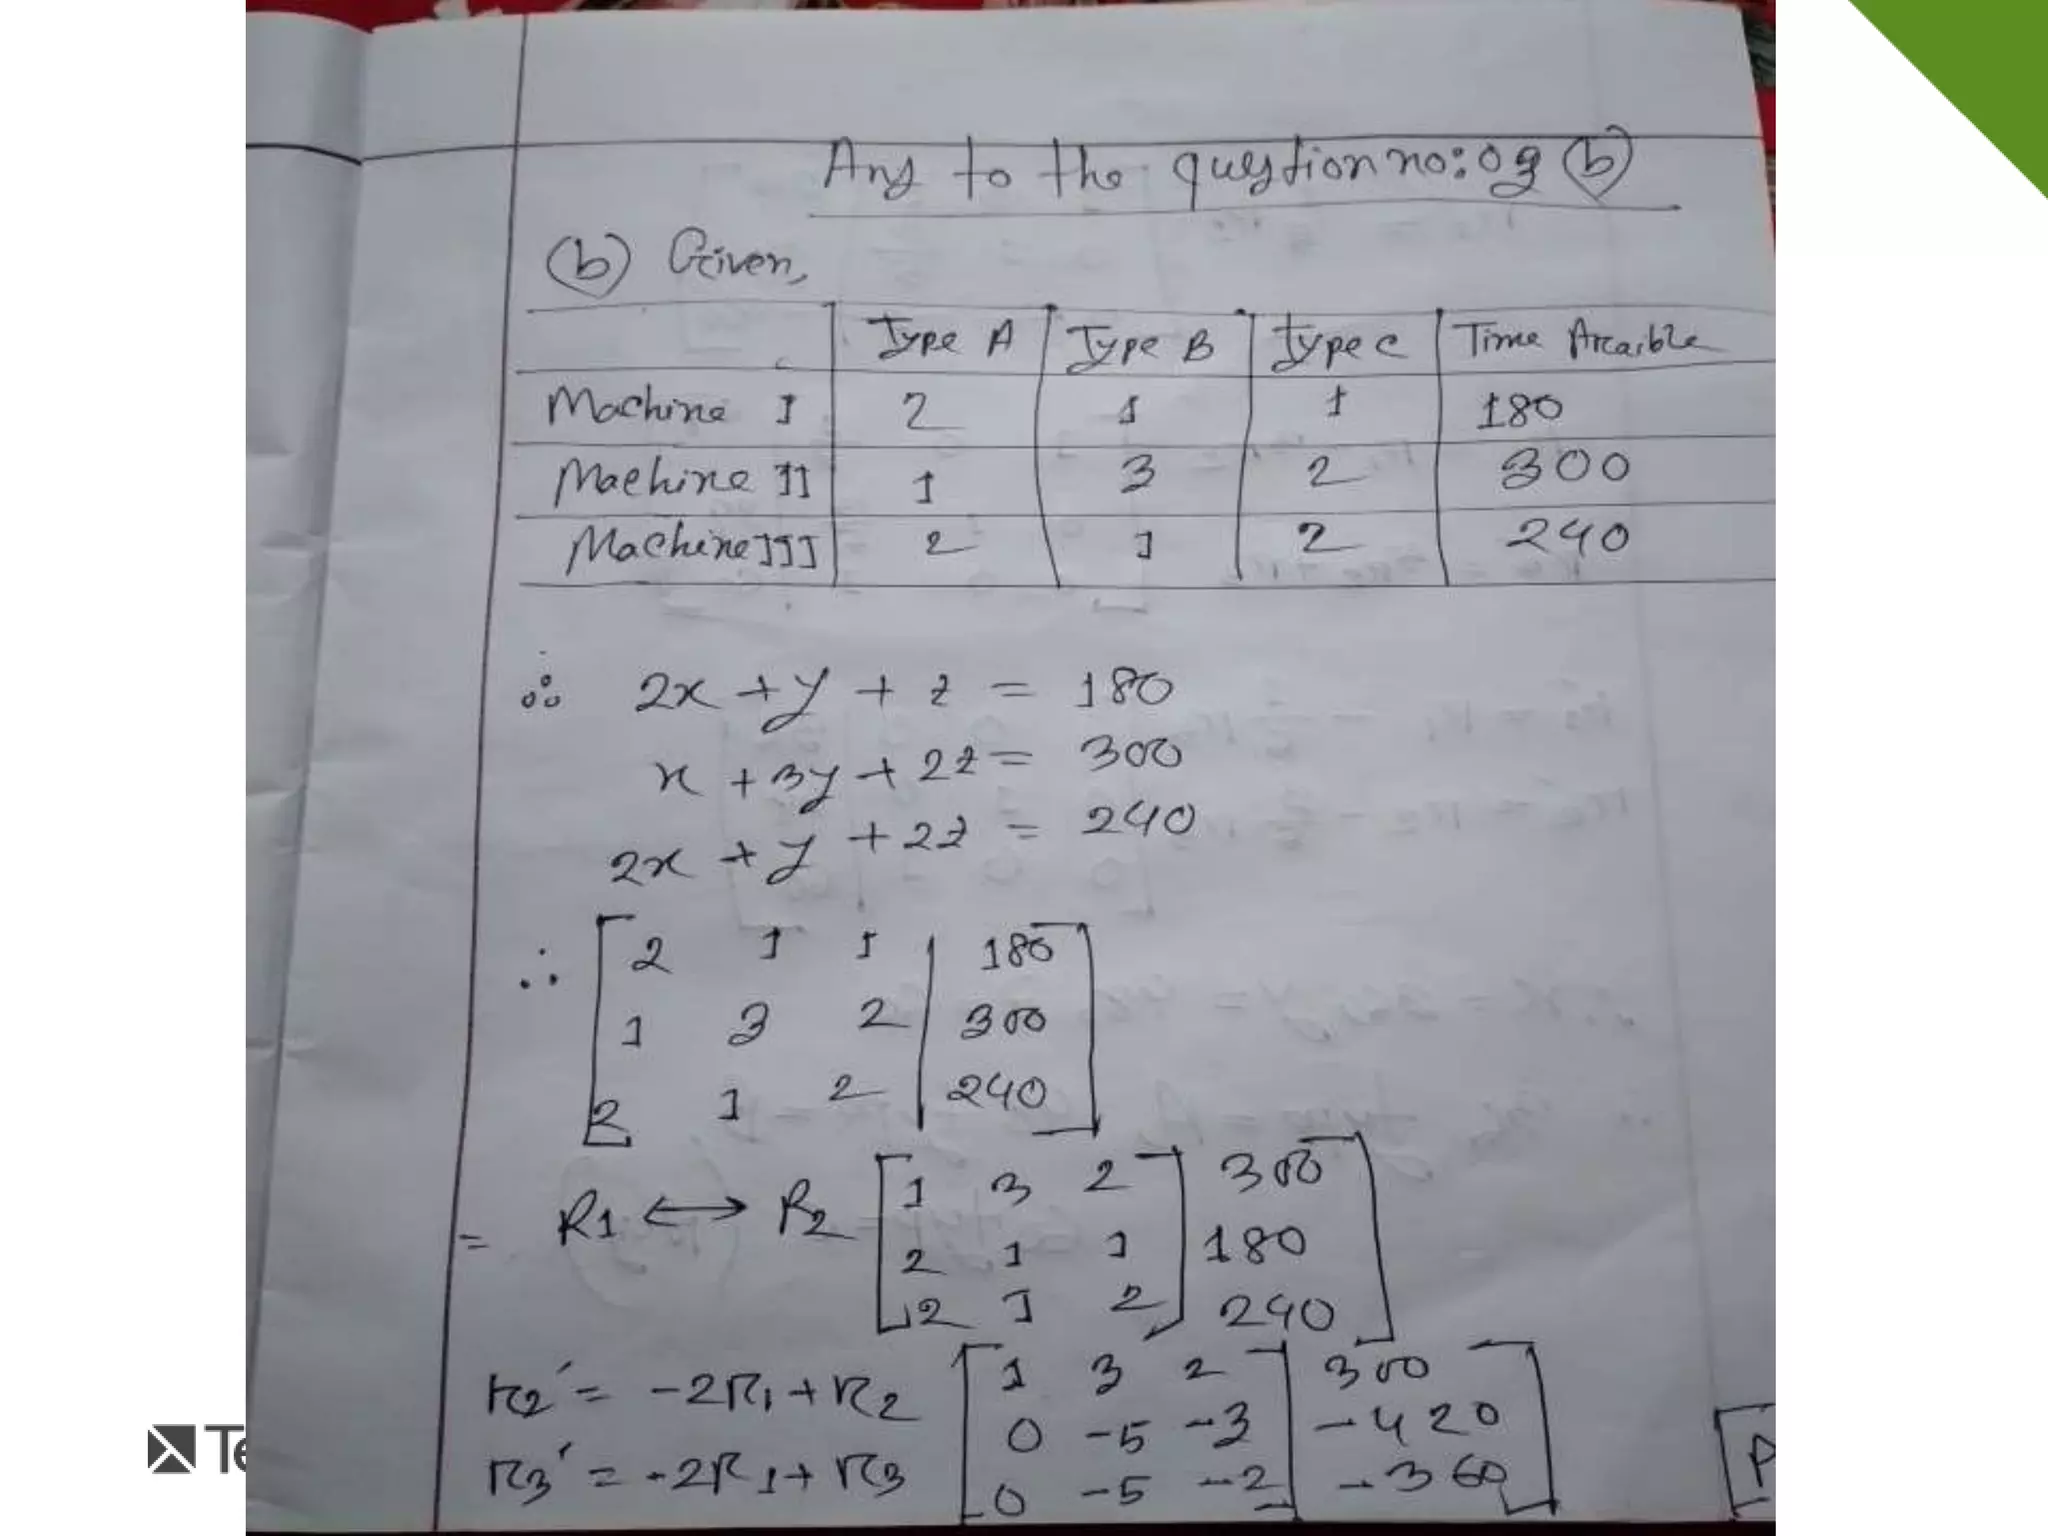 Ans to the question no: 03 (b)
(b) Given,
Type A Type B Type C Time
Machine I 2 1 1 180
Machine II 1 3 2 300
Machine III 2 1 2 240
∴ 2x + y + z = 180
x + 3y + 2z = 300
2x + y + 2z = 240
∴ [ 2 1 1 | 180
1 3 2 | 300
2 1 2 | 240 ]
= R1 ↔ R2 [ 1 3 2 | 300
2 1 1 | 180
2 1 2 | 240 ]
R2' = -2R1 + R2 [ 1 3 2 | 300
0 -5 -3 | -420
R3' = -2R1 + R3 0 -5 -2 | -360 ]
Te
P